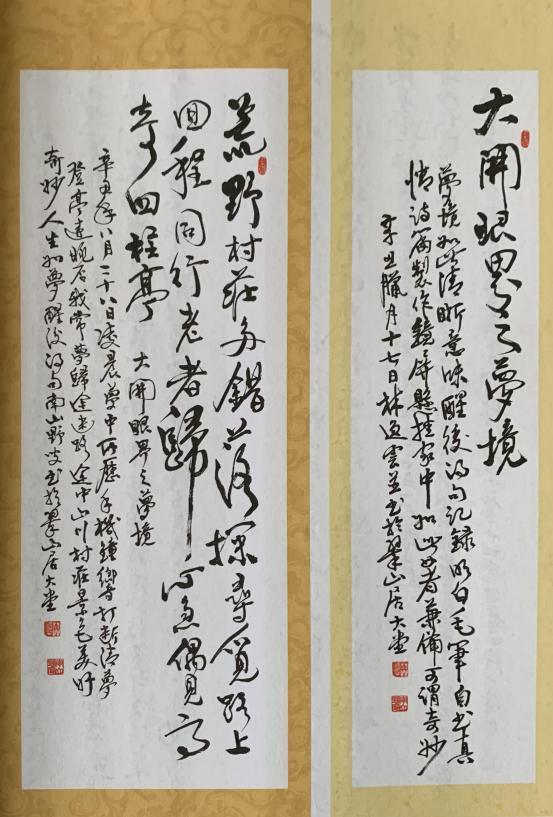 大開眼界之夢境
夢境如此清晰意味醒後詩句記錄明白毛筆自书真
情詩篇製作鏡屏懸挂家中如此者兼備可謂奇妙
辛丑臘月十七日林逸雲並书於翠山居大堂
荒野村莊多錯落探尋覓路上
回程同行老者歸心急偶見高
亭四柱亭 大開眼界之夢境
辛丑年八月二十八日凌晨夢中所歷手機鐘響打断清夢
登亭遠眺后我常夢歸途迷路途中山川村莊景色美好
奇妙人生如夢醒後詩句南山野叟书於翠山居大堂